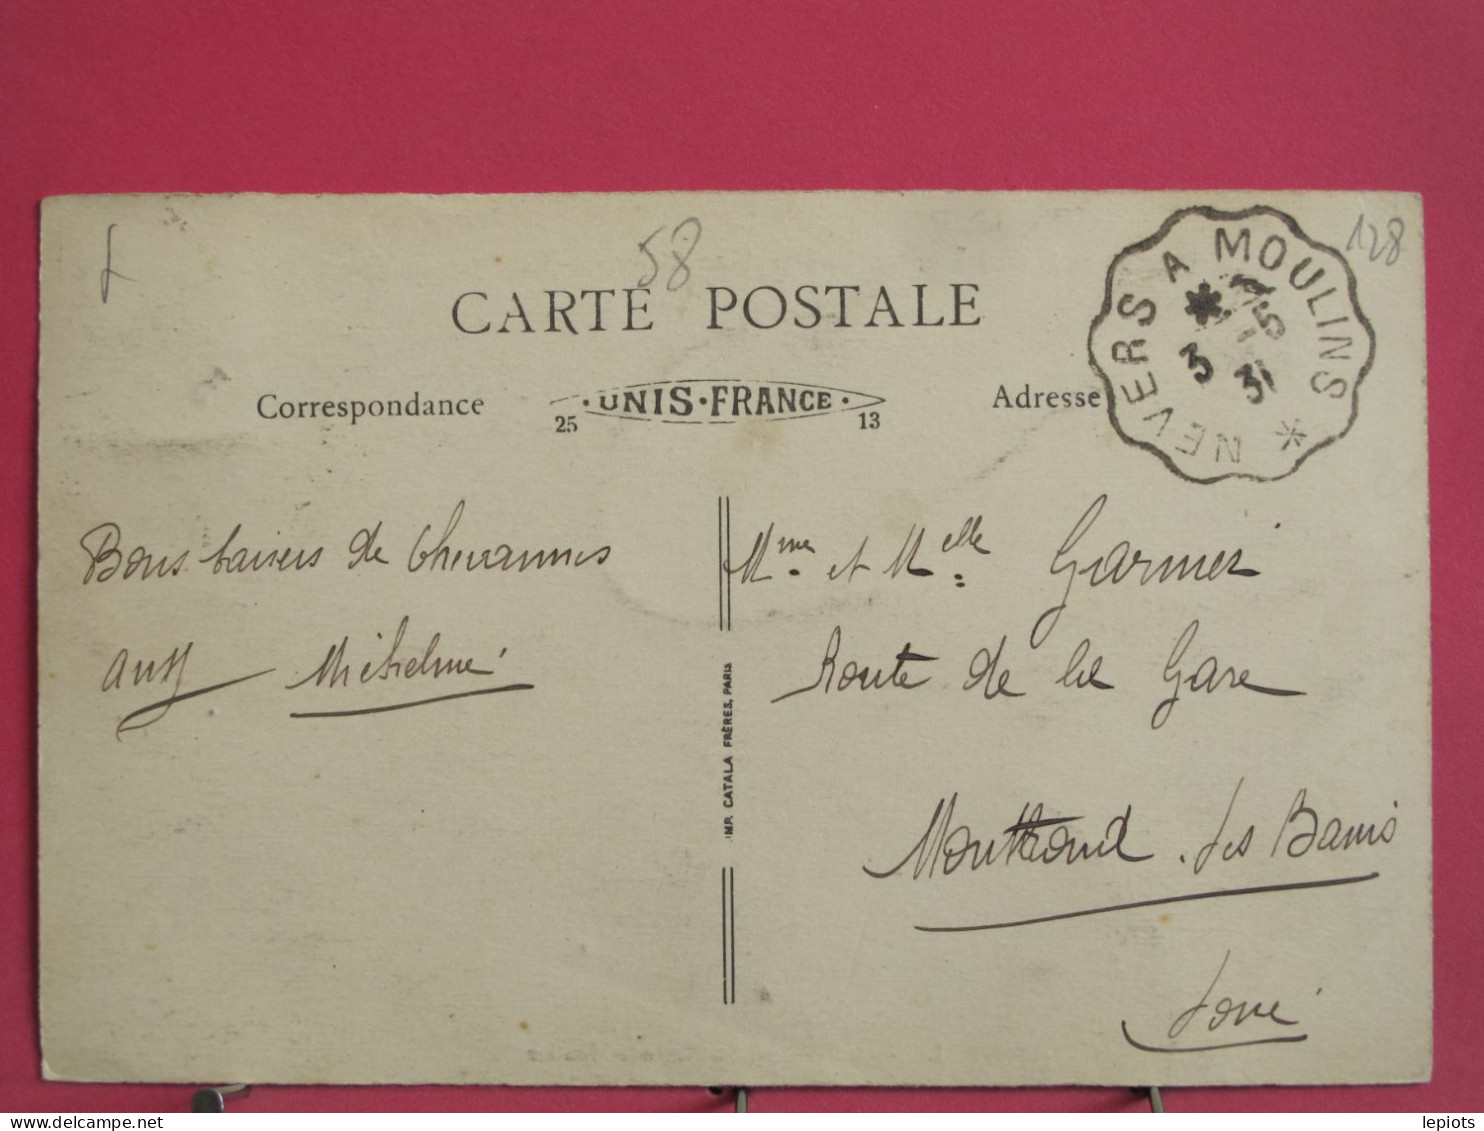 58
128
CARTE POSTALE
Correspondance
25 · UNIS · FRANCE · 13
Adresse
NEVERS A MOULINS
3 -5
31
Bons baisers de Chevannes
Mme et Melle Garnier
Route de la Gare
Montrond les Bains
Loire
IMP. CATALA FRÈRES, PARIS
delcampe.net
lepiots